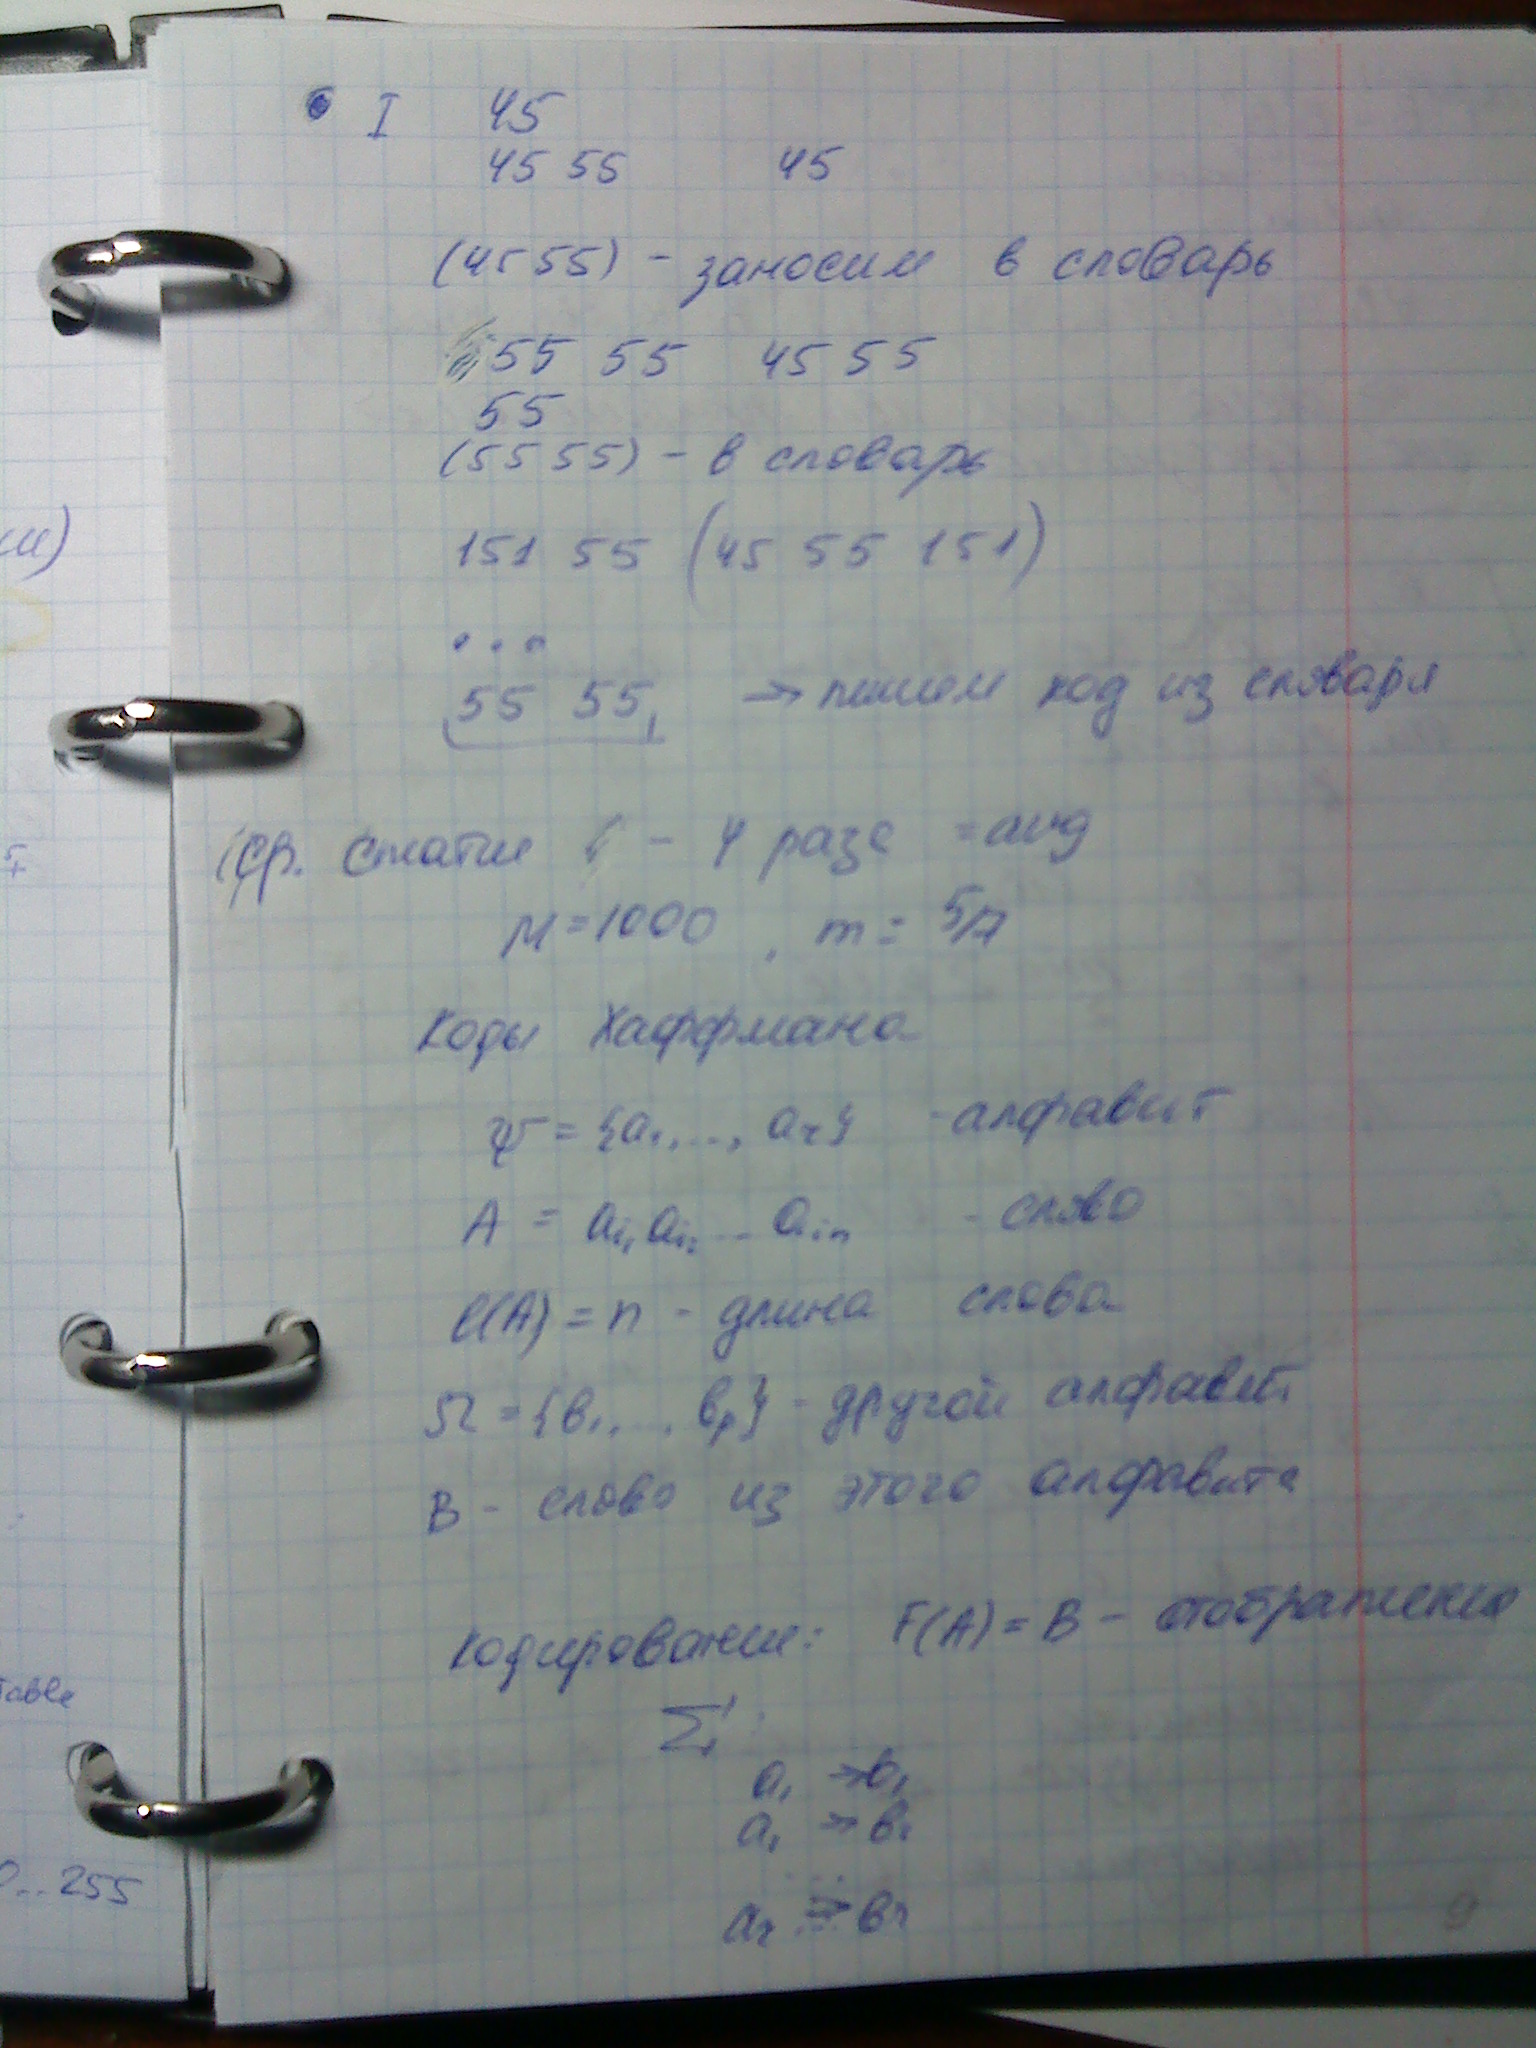 I 45
45 55 45
(45 55) - заносим в словарь
55 55 45 55
55
(55 55) - в словарь
151 55 (45 55 151)
...
55 55 → пишем код из словаря
(Ср. сжатие - 4 раза = avg
M = 1000, m = 5/7
Коды Хаффмана
Ψ = {a₁, ..., aᵣ} - алфавит
A = aᵢ₁ aᵢ₂ ... aᵢₙ - слово
l(A) = n - длина слова
Ω = {b₁, ..., bₚ} - другой алфавит
B - слово из этого алфавита
Кодирование: F(A) = B - отображение
Σ:
a₁ → b₁
a₁ → b₁
...
aᵣ → bᵣ
9
ии)
table
0..255